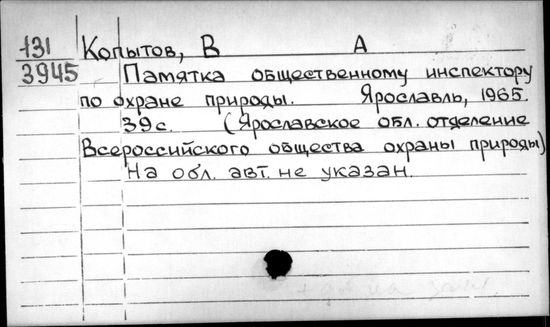 131 Копытов, В А
3945 Памятка общественному инспектору
по охране природы. Ярославль, 1965.
39 с. (Ярославское обл. отделение
Всероссийского общества охраны природы)
На обл. авт. не указан.